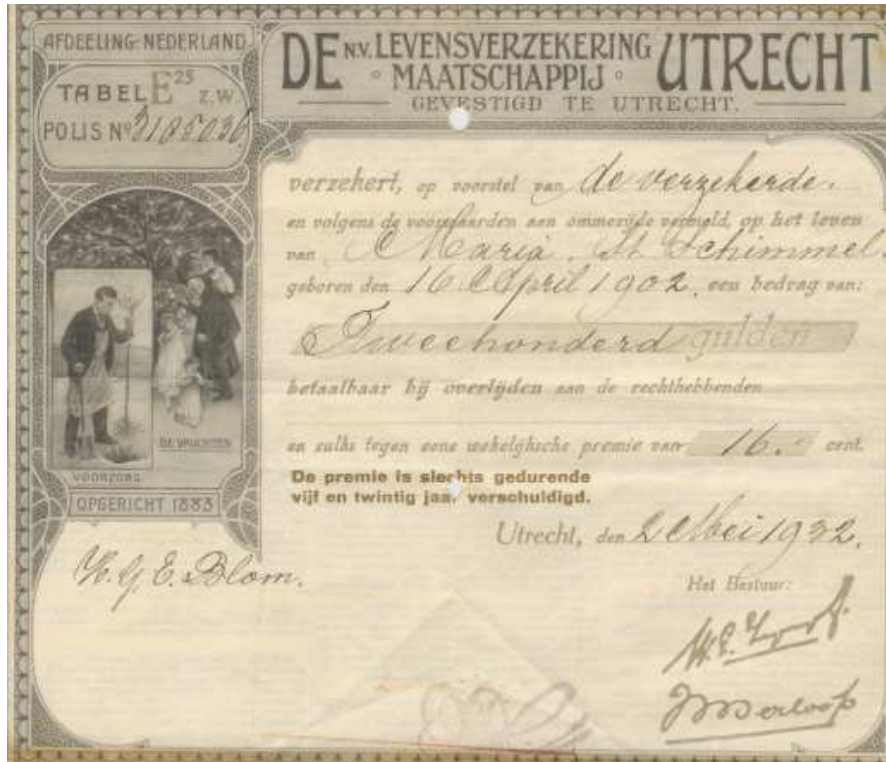 AFDEELING-NEDERLAND
TABEL E25 Z.W.
POLIS No 3185036
DE N.V. LEVENSVERZEKERING MAATSCHAPPIJ UTRECHT
GEVESTIGD TE UTRECHT.
verzekert, op voorstel van de verzekerde.
en volgens de voorwaarden aan ommezijde vermeld, op het leven
van Maria Schimmel.
geboren den 16 April 1902, een bedrag van:
Tweehonderd gulden
betaalbaar bij overlijden aan de rechthebbenden
en zulks tegen eene wekelijksche premie van 16.- cent.
De premie is slechts gedurende
vijf en twintig jaar verschuldigd.
Utrecht, den 2 Mei 1932.
DE VRUCHTEN
VOORZORG
OPGERICHT 1883
H. G. E. Blom.
Het Bestuur: